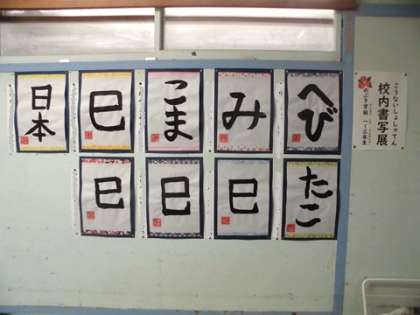 へび
み
こま
巳
日本
たこ
巳
巳
巳
こうないしょしゃてん
校内書写展